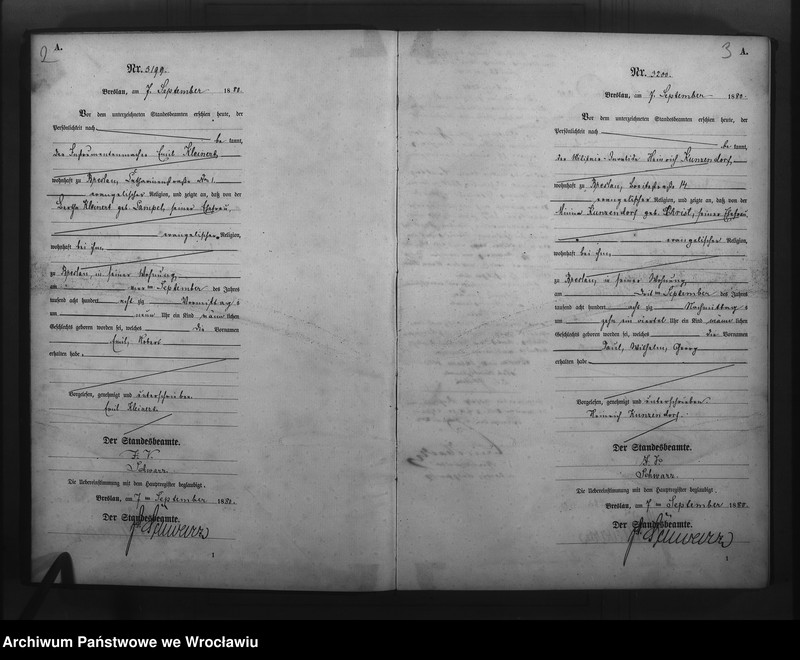 2
A.
Nr. 3199.
Breslau, am 7. September 1880.
Vor dem unterzeichneten Standesbeamten erschien heute, der
Persönlichkeit nach
be kannt,
der Instrumentenmacher Emil Kleinert
wohnhaft zu Breslau, Katharinenstraße No 1
evangelischer Religion, und zeigte an, daß von der
Bertha Kleinert geb. Lampel, seiner Ehefrau,
evangelischer Religion,
wohnhaft bei ihm
zu Breslau, in seiner Wohnung,
am vier ten September des Jahres
tausend acht hundert acht zig Vormittags
um neun Uhr ein Kind männlichen
Geschlechts geboren worden sei, welches die Vornamen
Emil, Robert
erhalten habe.
Vorgelesen, genehmigt und unterschrieben
Emil Kleinert
Der Standesbeamte.
J. V.
Schwarz
Die Uebereinstimmung mit dem Hauptregister beglaubigt.
Breslau, am 7 ten September 1880.
Der Standesbeamte.
Schwarz
1
3
A.
Nr. 3200.
Breslau, am 7. September 1880.
Vor dem unterzeichneten Standesbeamten erschien heute, der
Persönlichkeit nach
be kannt,
der Militair-Invalide Heinrich Kunzendorf,
wohnhaft zu Breslau, Breitestraße 14
evangelischer Religion, und zeigte an, daß von der
Minna Kunzendorf geb. Christ, seiner Ehefrau
evangelischer Religion,
wohnhaft bei ihm,
zu Breslau, in seiner Wohnung
am drit ten September des Jahres
tausend acht hundert acht zig Nachmittags
um zehn ein viertel Uhr ein Kind männlichen
Geschlechts geboren worden sei, welches die Vornamen
Paul, Wilhelm, Georg
erhalten habe.
Vorgelesen, genehmigt und unterschrieben
Heinrich Kunzendorf
Der Standesbeamte.
J. V.
Schwarz
Die Uebereinstimmung mit dem Hauptregister beglaubigt.
Breslau, am 7 ten September 1880.
Der Standesbeamte.
Schwarz
1
Archiwum Państwowe we Wrocławiu